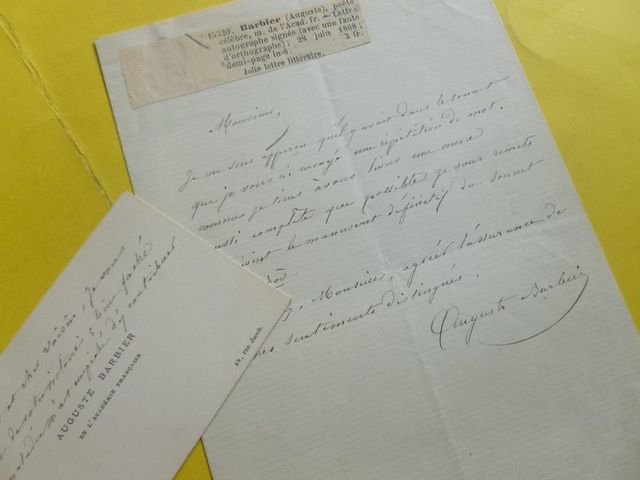 15320. Barbier (Auguste), poète
célèbre, m. de l'Acad. fr. — Lettre
autographe signée (avec une faute
d'orthographe); 28 juin 1868;
demi-page in-8. 3 fr.
Jolie lettre littéraire.
Monsieur,
Je me suis apperçu qu'il y avait dans le sonnet
que je vous ai envoyé une répétition de mot.
comme je tiens à vous livrer une œuvre
aussi complète que possible je vous remets
le manuscrit définitif du sonnet
Monsieur, agréer l'assurance de
mes sentiments distingués.
Auguste Barbier
et cher voisin, je vous
AUGUSTE BARBIER
DE L'ACADÉMIE FRANÇAISE
d'y contribuer.
48, rue Jacob.